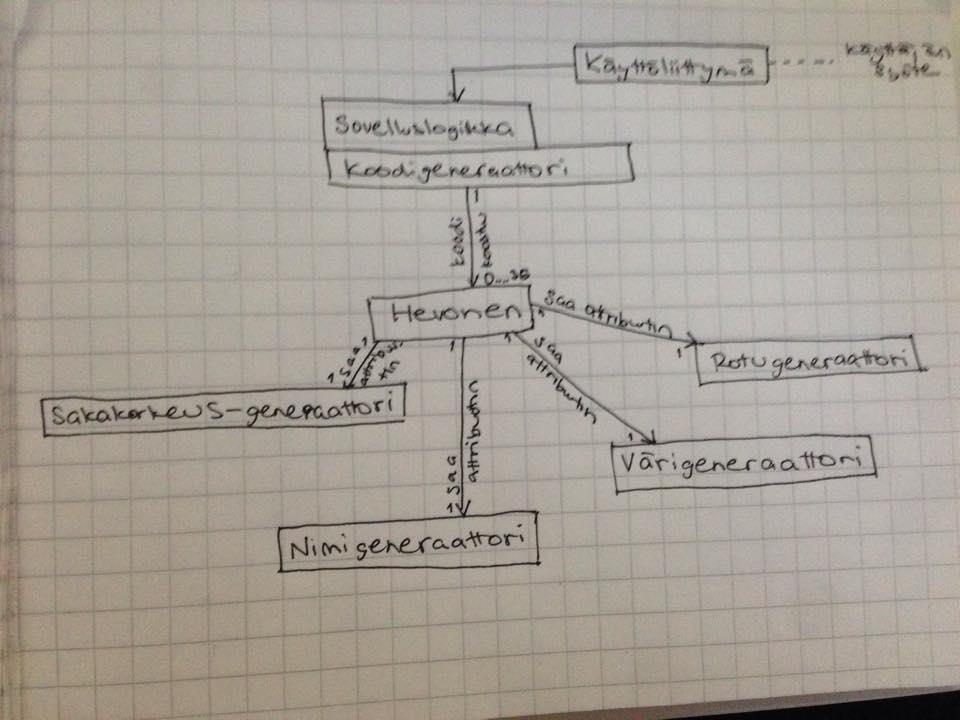 Käyttöliittymä
käyttäjän
syöte
Sovelluslogiikka
Koodigeneraattori
1
koodi
koostuu
0...36
Hevonen
1
saa attribuutin
1
Rotugeneraattori
1
saa
attribuutin
1
Värigeneraattori
1
saa
attribuutin
1
Nimigeneraattori
1
saa
attribuu
tin
1
Säkäkorkeus-generaattori